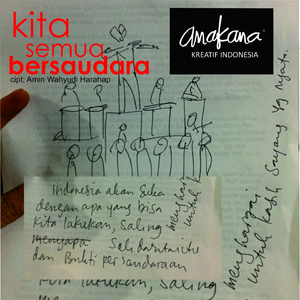 kita
semua
bersaudara
cipt: Amin Wahyudi Harahap
anakana
KREATIF INDONESIA
Indonesia akan suka
dengan apa yang bisa
kita lakukan, saling
menyapa Solidaritaslite
dan Bukti persaudaraan
menghargai
untuk
menghargai
untuk kasih sayang yg nyata.
kita lakukan, saling